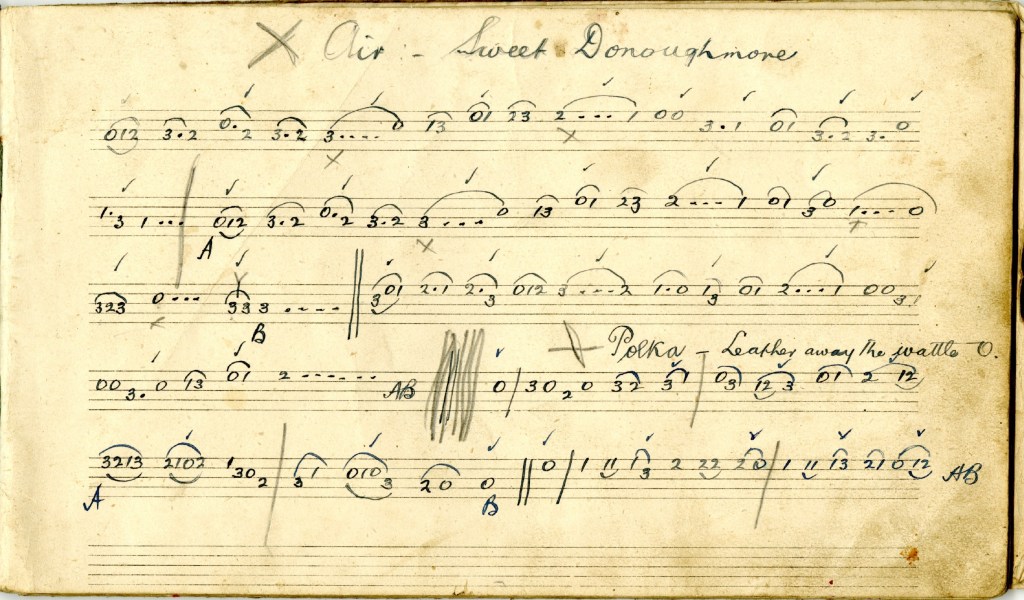 X Air - Sweet Donoughmore
012 3.2 0.2 3.2 3....0 13 01 23 2....1 00 3.1 01 3.2 3.0
1.3 1... 012 3.2 0.2 3.2 3....0 13 01 23 2....1 01 30 1....0
A
323 0... 333 3..... 301 2.1 2.3 012 3.....2 1.0 13 01 2....1 003.1
B
X Polka - Leather away the wattle O.
003.0 13 01 2....... AB 0 / 3020 32 31 03 123 01 2 12
3213 2102 1302 31 0103 20 0 || 0 / 1 11 13 2 22 20 1 11 13 21 012 AB
A B